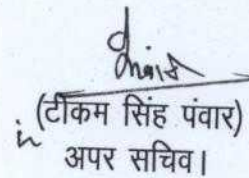 (टीकम सिंह पंवार)
अपर सचिव।